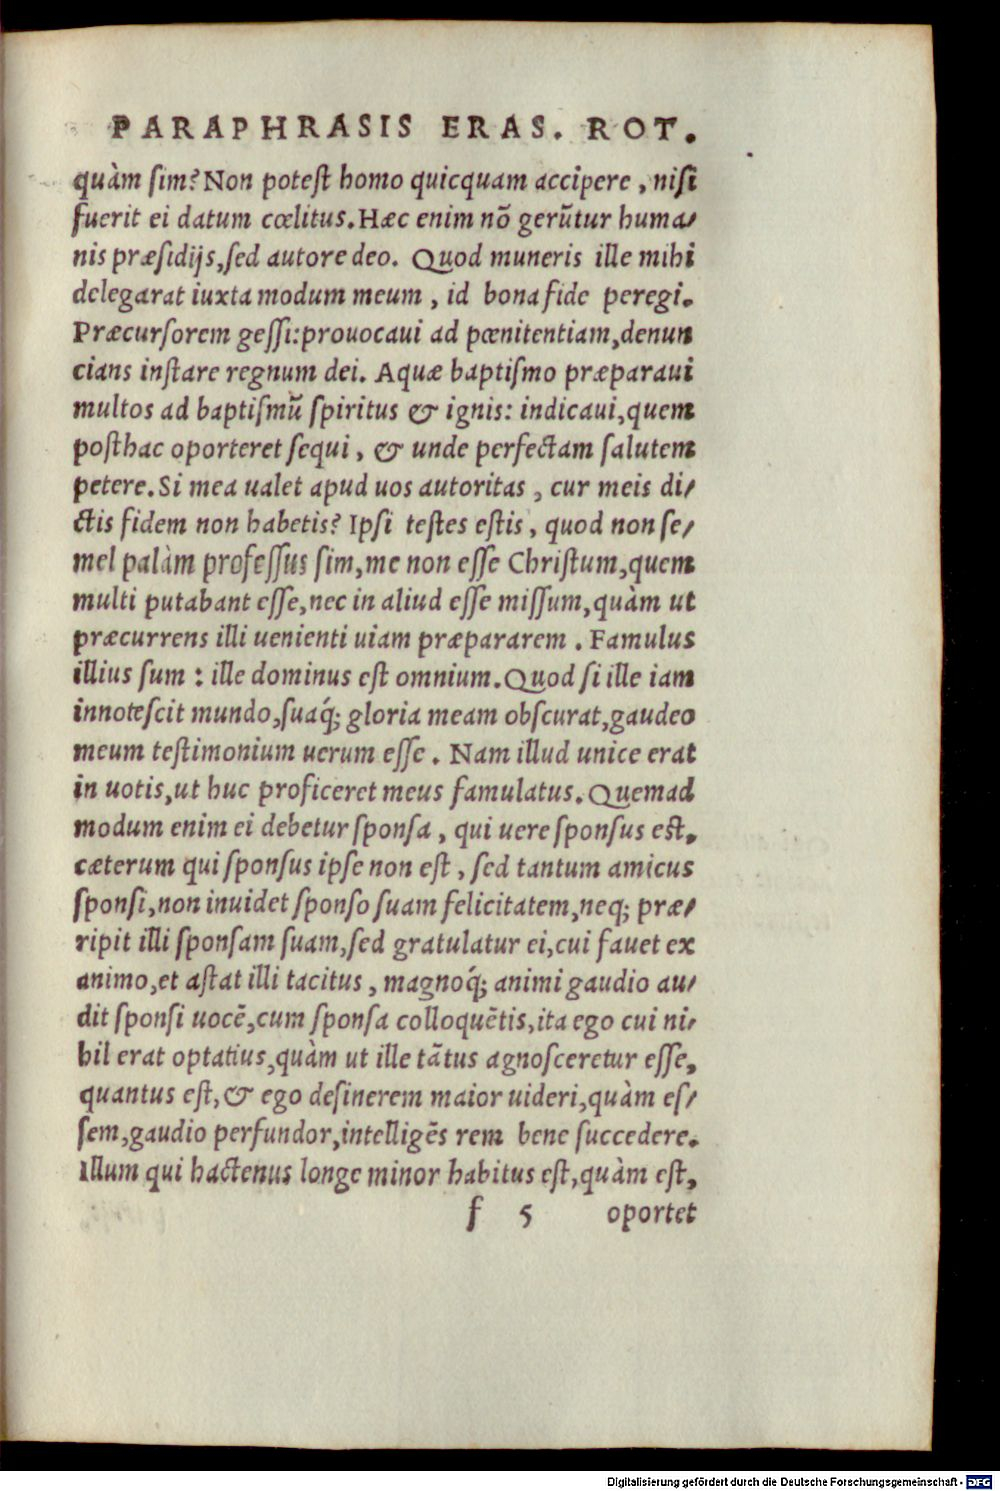 PARAPHRASIS ERAS. ROT.
quàm ſim? Non poteſt homo quicquam accipere, niſi
fuerit ei datum cœlitus. Hæc enim nõ gerũtur huma⸗
nis præſidijs, ſed autore deo. Quod muneris ille mihi
delegarat iuxta modum meum, id bona fide peregi.
Præcurſorem geſſi: prouocaui ad pœnitentiam, denun
cians inſtare regnum dei. Aquæ baptiſmo præparaui
multos ad baptiſmũ ſpiritus & ignis: indicaui, quem
poſthac oporteret ſequi, & unde perfectam ſalutem
petere. Si mea ualet apud uos autoritas, cur meis di⸗
ctis fidem non habetis? Ipſi teſtes eſtis, quod non ſe⸗
mel palàm profeſſus ſim, me non eſſe Chriſtum, quem
multi putabant eſſe, nec in aliud eſſe miſſum, quàm ut
præcurrens illi uenienti uiam præpararem. Famulus
illius ſum: ille dominus eſt omnium. Quod ſi ille iam
innoteſcit mundo, ſuaq́; gloria meam obſcurat, gaudeo
meum teſtimonium uerum eſſe. Nam illud unice erat
in uotis, ut huc proficeret meus famulatus. Quemad
modum enim ei debetur ſponſa, qui uere ſponſus eſt.
cæterum qui ſponſus ipſe non eſt, ſed tantum amicus
ſponſi, non inuidet ſponſo ſuam felicitatem, neq; præ⸗
ripit illi ſponſam ſuam, ſed gratulatur ei, cui fauet ex
animo, et aſtat illi tacitus, magnoq́; animi gaudio au⸗
dit ſponſi uocẽ, cum ſponſa colloquẽtis, ita ego cui ni⸗
hil erat optatius, quàm ut ille tãtus agnoſceretur eſſe,
quantus eſt, & ego deſinerem maior uideri, quàm eſ⸗
ſem, gaudio perfundor, intelligẽs rem bene ſuccedere.
Illum qui hactenus longe minor habitus eſt, quàm eſt,
f 5 oportet
Digitalisierung gefördert durch die Deutsche Forschungsgemeinschaft - DFG